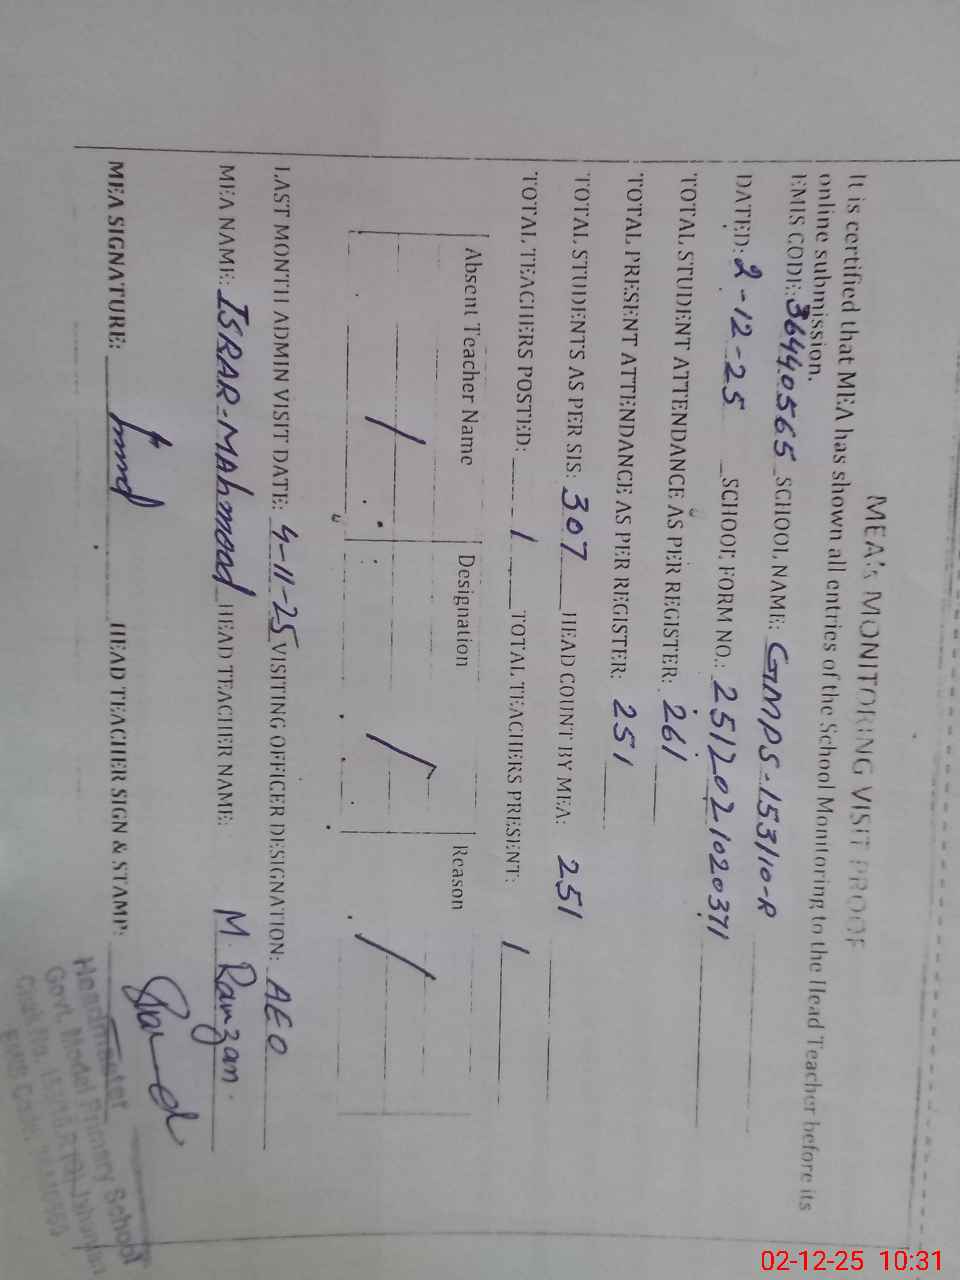 MEA's MONITORING VISIT PROOF
It is certified that MEA has shown all entries of the School Monitoring to the Head Teacher before its
online submission.
EMIS CODE: 36440565 SCHOOL NAME: GMPS-153/10-R
DATED: 2-12-25 SCHOOL FORM NO.: 2512021020371
TOTAL STUDENT ATTENDANCE AS PER REGISTER: 261
TOTAL PRESENT ATTENDANCE AS PER REGISTER: 251
TOTAL STUDENTS AS PER SIS: 307 HEAD COUNT BY MEA: 251
TOTAL TEACHERS POSTED: 1 TOTAL TEACHERS PRESENT: 1
Absent Teacher Name Designation Reason
/ / /
LAST MONTH ADMIN VISIT DATE: 4-11-25 VISITING OFFICER DESIGNATION: AEO
MEA NAME: ISRAR-MAhmood HEAD TEACHER NAME: M. Ramzan.
MEA SIGNATURE: HEAD TEACHER SIGN & STAMP:
Headmaster
Govt. Model Primary School
Chak No. Jahanian
EMIS Code:
02-12-25 10:31